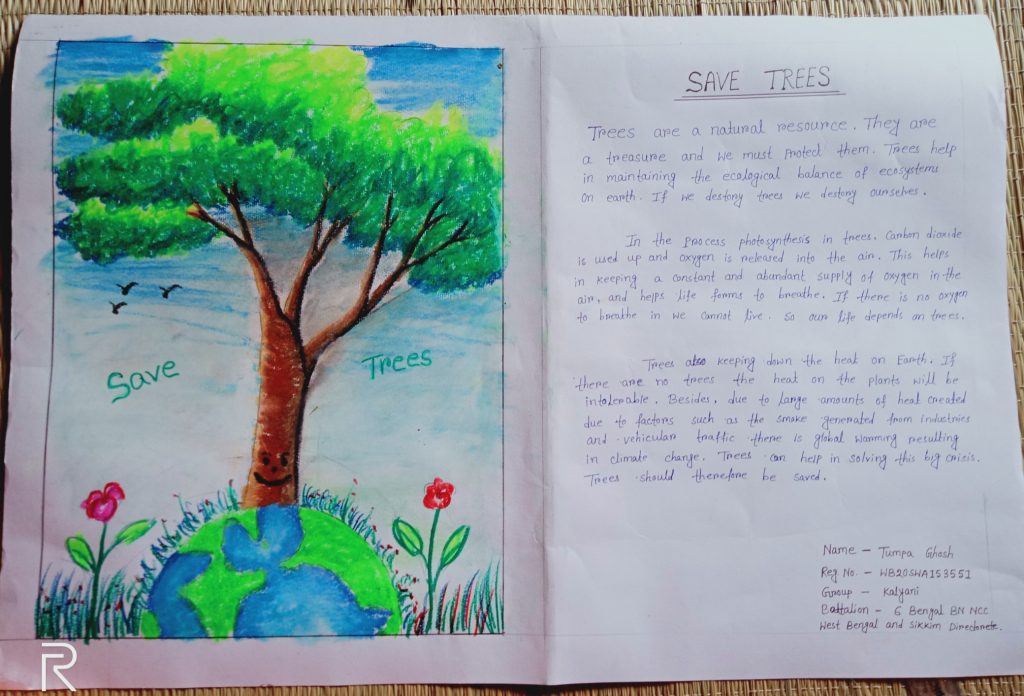 Save
Trees
SAVE TREES
Trees are a natural resource. They are
a treasure and we must protect them. Trees help
in maintaining the ecological balance of ecosystems
on earth. If we destony trees we destony ourselves.
In the process photosynthesis in trees. Carbon dioxide
is used up and oxygen is released into the air. This helps
in keeping a constant and abundant supply of oxygen in the
air, and helps life forms to breathe. If there is no oxygen
to breathe in we cannot live. So our life depends on trees.
Trees also keeping down the heat on Earth. If
there are no trees the heat on the plants will be
intolerable. Besides, due to large amounts of heat created
due to factors such as the smoke generated from industries
and vehicular traffic there is global warming resulting
in climate change. Trees can help in solving this big crisis.
Trees should therefore be saved.
Name - Tumpa Ghosh
Reg No. - WB20SWA153551
Group - Kalyani
Battalion - 6 Bengal BN NCC
West Bengal and Sikkim Directorete.
R